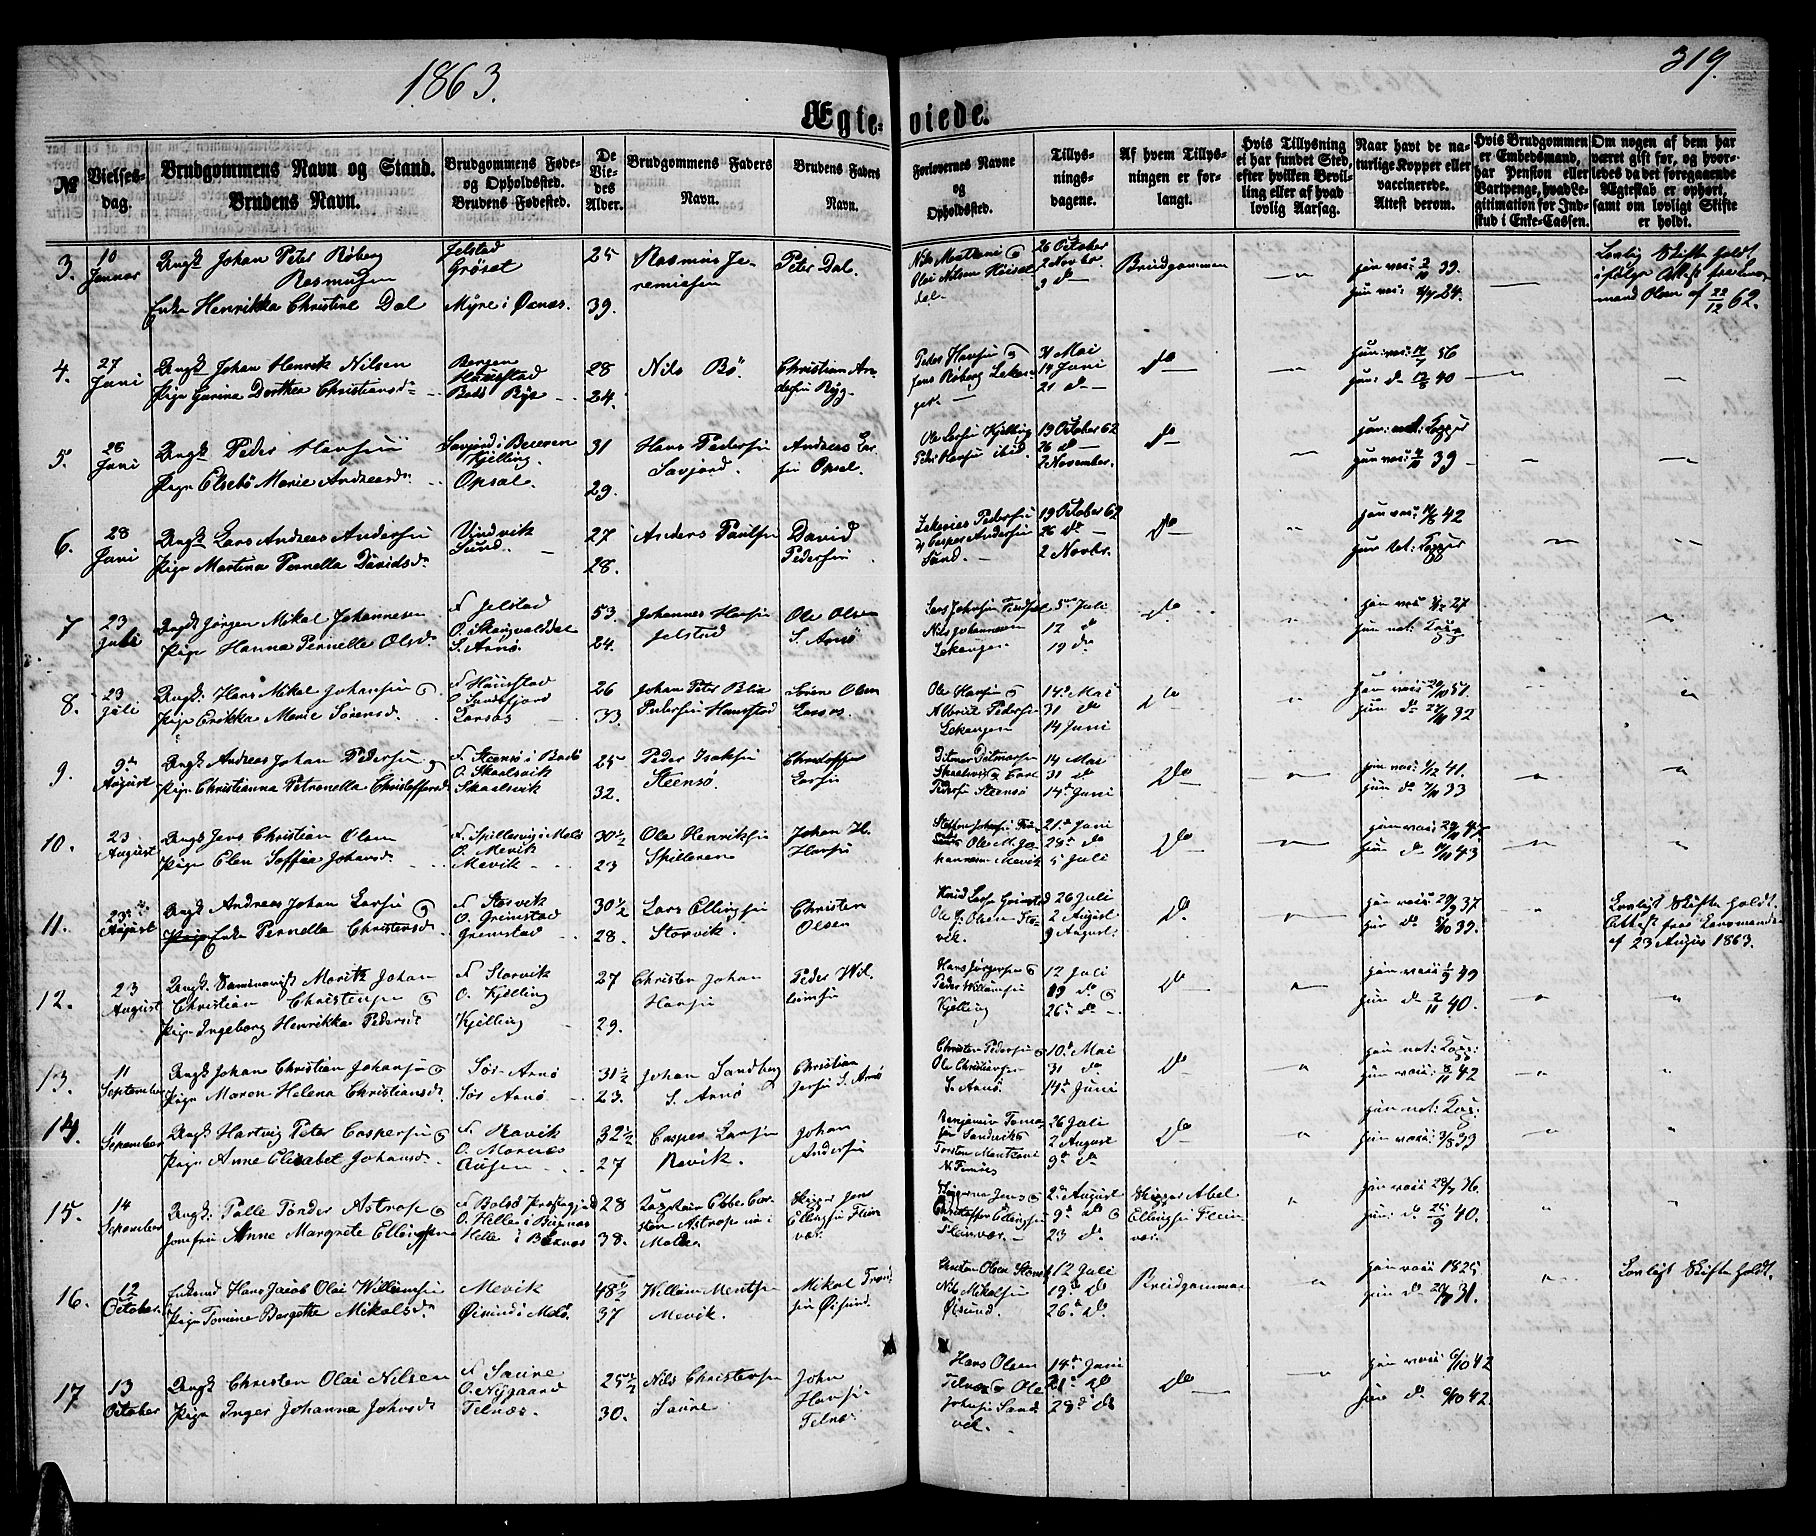 1863.
319.
Ægteviede.
No
Vielses-
dag.
Brudgommens Navn og Stand.
Brudens Navn.
Brudgommens Føde-
og Opholdssted.
Brudens Fødested.
De
Vie-
des
Alder.
Brudgommens Faders
Navn.
Brudens Faders
Navn.
Forlovernes Navne
og
Opholdssted.
Tillys-
nings-
dagene.
Af hvem Tillys-
ningen er for-
langt.
Hvis Tillysning
ei har fundet Sted,
efter hvilken Bevil-
ling eller af hvad
lovlig Aarsag.
Naar havt de na-
turlige Kopper eller
vaccinerede.
Attest derom.
Hvis Brudgommen
er Embedsmand,
har Pension eller
Vartpenge, hvad Le-
gitimation for Ind-
skud i Enke-Cassen.
Om nogen af dem har
været gift før, og hvor-
ledes da det foregaaende
Ægteskab er ophørt,
samt om lovligt Skifte
er holdt.
3. 10 Januar
Ungk Johan Peter Røberg
Rasmusen
Enke Henrikka Christine Dal
Jelstad
Grøset
Myre i Øxnæs
25
39.
Rasmus Je-
remiesen
Peter Dal.
26 October
2 Novbr.
9 do
Brudgommen
han vac: 39.
hun vac: 24.
Lovlig Skifte holdt
ifølge Attest fra Lens-
mand Olsen af 22/12 62.
4. 27 Juni
Ungk Johan Henrik Nilsen
Pige Gurina Dorthea Christiansd
Bergen
Haustad
Bodø Byes
28
24.
Nils Bø.
Christian An-
dersen Ryg
Peder Hansen &
Jens Røberg Leken-
get
31 Mai
14 Juni
21 do
do
56
hun do 40
5. 28 Juni
Ungk Peder Hansen
Pige Elsebe Marie Andreasd
Savjord i Beieren
Kjelling.
Opsal.
31
29.
Hans Pedersen
Savjord.
Andreas Lar-
sen Opsal.
Ole Larsen Kjelling
Peder Hansen ibid
19 October 62
26 do
2 November.
do
han: nat: Kopper
hun vac: 39
6. 28 Juni
Ungk Lars Andreas Andersen
Pige Martina Pernella Davidsd
Vindvik
Sund.
27
28.
Anders Paulsen
David
Pedersen
Zekarias Pedersen
& Casper Andersen
Sund.
19 October 62
26 do
2 Novbr.
do
han vac: 42
hun nat: Kopper
7 23 Juli
Ungk Jørgen Mikal Johannesen
Pige Hanna Pernella Olsd
F. Jelstad
O. i Skaugvolddal
S. Arnø.
53.
24.
Johannes Hansen
Jelstad
Ole Olsen
S. Arnø
Nils Johannesen
Lekangen
5 Juli
12 do
19 do
do
han vac 27
hun nat: Kopp
8. 23 Juli
Ungk. Hans Mikal Johansen &
Pige Erikka Marie Sørensd
F. Haustad
Larsos
26
33.
Johan Peter Blix
Pedersen Haustad
Søren Olsen
Larsos.
Ole Hansen &
Albrict Pedersen
Lekangen
14 Mai
31 do
14 Juni
do
han vac: 51.
hun do 32
9. 9 August
Ungk. Andreas Johan Pedersen &
Pige Christianna Petronella Christoffersd
F. Steensø i Bodø
O. Skaalsvik
Skaalsvik
25
32.
Peder Isaksen
Steensø.
Christoffer
Larsen
Ditmer Ditmersen
Skaalsvik & Carl
Pedersen Steensø
14 Mai
31 do
14 Juni
do
han vac: 41.
hun do 33
10. 23 August
Ungk Jens Christian Olsen
Pige Elen Soffie Johansd
F. Spildervig i Melø
O. Mevik
Mevik
30 1/2
23
Ole Henriksen
Spilderen
Johan H.
Hansen
Ole M. Jo-
hannesen Mevik
21 Juni
28 do
5 Juli
do
han vac: 47
hun do 43
11. 23 August
Ungk Andreas Johan Larsen &
Pige Enke Pernella Christensd
F. Storvik
O. Grimstad
Grimstad
30 1/2
28.
Lars Ellingsen
Storvik.
Christen
Olsen
Knud Larsen Grimstad
Ole J. Olsen Stor-
vik.
26 Juli
2 August
9 August:
do.
han vac: 37
hun do 39.
Lovligt Skifte holdt.
Attest fra Lensmanden
af 23 Augus 1863.
12. 23 August
Ungk. Seminarist Moritz Johan
Christian Christensen &
Pige Ingeborg Henrikka Pedersd
F. Storvik
O. Kjelling
Kjelling
27
29.
Christen Johan
Hansen
Peder Wil-
lumsen
Hans Jørgensen &
Peder Willumsen
Kjelling
12 Juli
19 do &
26 do
do
han vac: 49
hun do 2/11 40.
13. 11 September
Ungk Johan Christian Johansen &
Pige Maren Helena Christiansd
Sør Arnø
Sør Arnø
31 1/2
23.
Johan Sandberg
S. Arnø
Christian
Jensen S. Arnø
Christen Pedersen &
Ole Christiansen
S. Arnø
10 Mai
31 do
14 Juni
do
han nat: Kopp:
hun vac: 42
14. 11 September
Ungk Hartvig Peter Caspersen &
Pige Anne Elisabet Johansd
F. Ravik
O. Mornæs
32 1/2
27
Casper Larsen
Ravik.
Johan
Andersen
26 Juli
2 August
9 do
do
han nat: Kopp:
hun vac: 39
15. 14 September
Ungk. Palle Tønder Astrop &
Jomfru Anne Margrete Ellingsen
F. Bolsø Præstegjeld
O. Helle i Buxnæs
Helle i Buxnæs
28
38.
Ebbe Car-
sten Astrop
Molde
Skipper Jens
Ellingsen Flein-
vær.
Christoffer Ellingsen
Fleinvær.
2 August
9 do &
23 do.
Skipper Abel
Ellingsen Flein-
vær.
han vac: 36.
hun: do 40.
16. 12 October
Enkemd Hans Jacob Olai Willumsen
Pige Tomine Bergethe Mikalsd
Mevik
Øisund i Melø.
48 1/2
37
Willum Mentsen
Mevik.
Mikal Trond-
sen Øisund.
Nils Mikalsen
Øisund.
12 Juli
19 do
26 do
Brudgommen
han vac: 1825
hun do 31.
Lovligt Skifte holdt.
17 13 October
Ungk Christen Olai Nilsen
Pige Inger Johanna Johnsd
F. Saure
O. Nygaard
Telnæs.
25 1/2
30.
Nils Christensen
Saure
John
Hansen
Telnæs
Hans Olsen
Telnæs & Ole
Johnsen Sand-
vik.
14 Juni
21 do
28 do
do
han vac: 6/10 42
hun do 42.